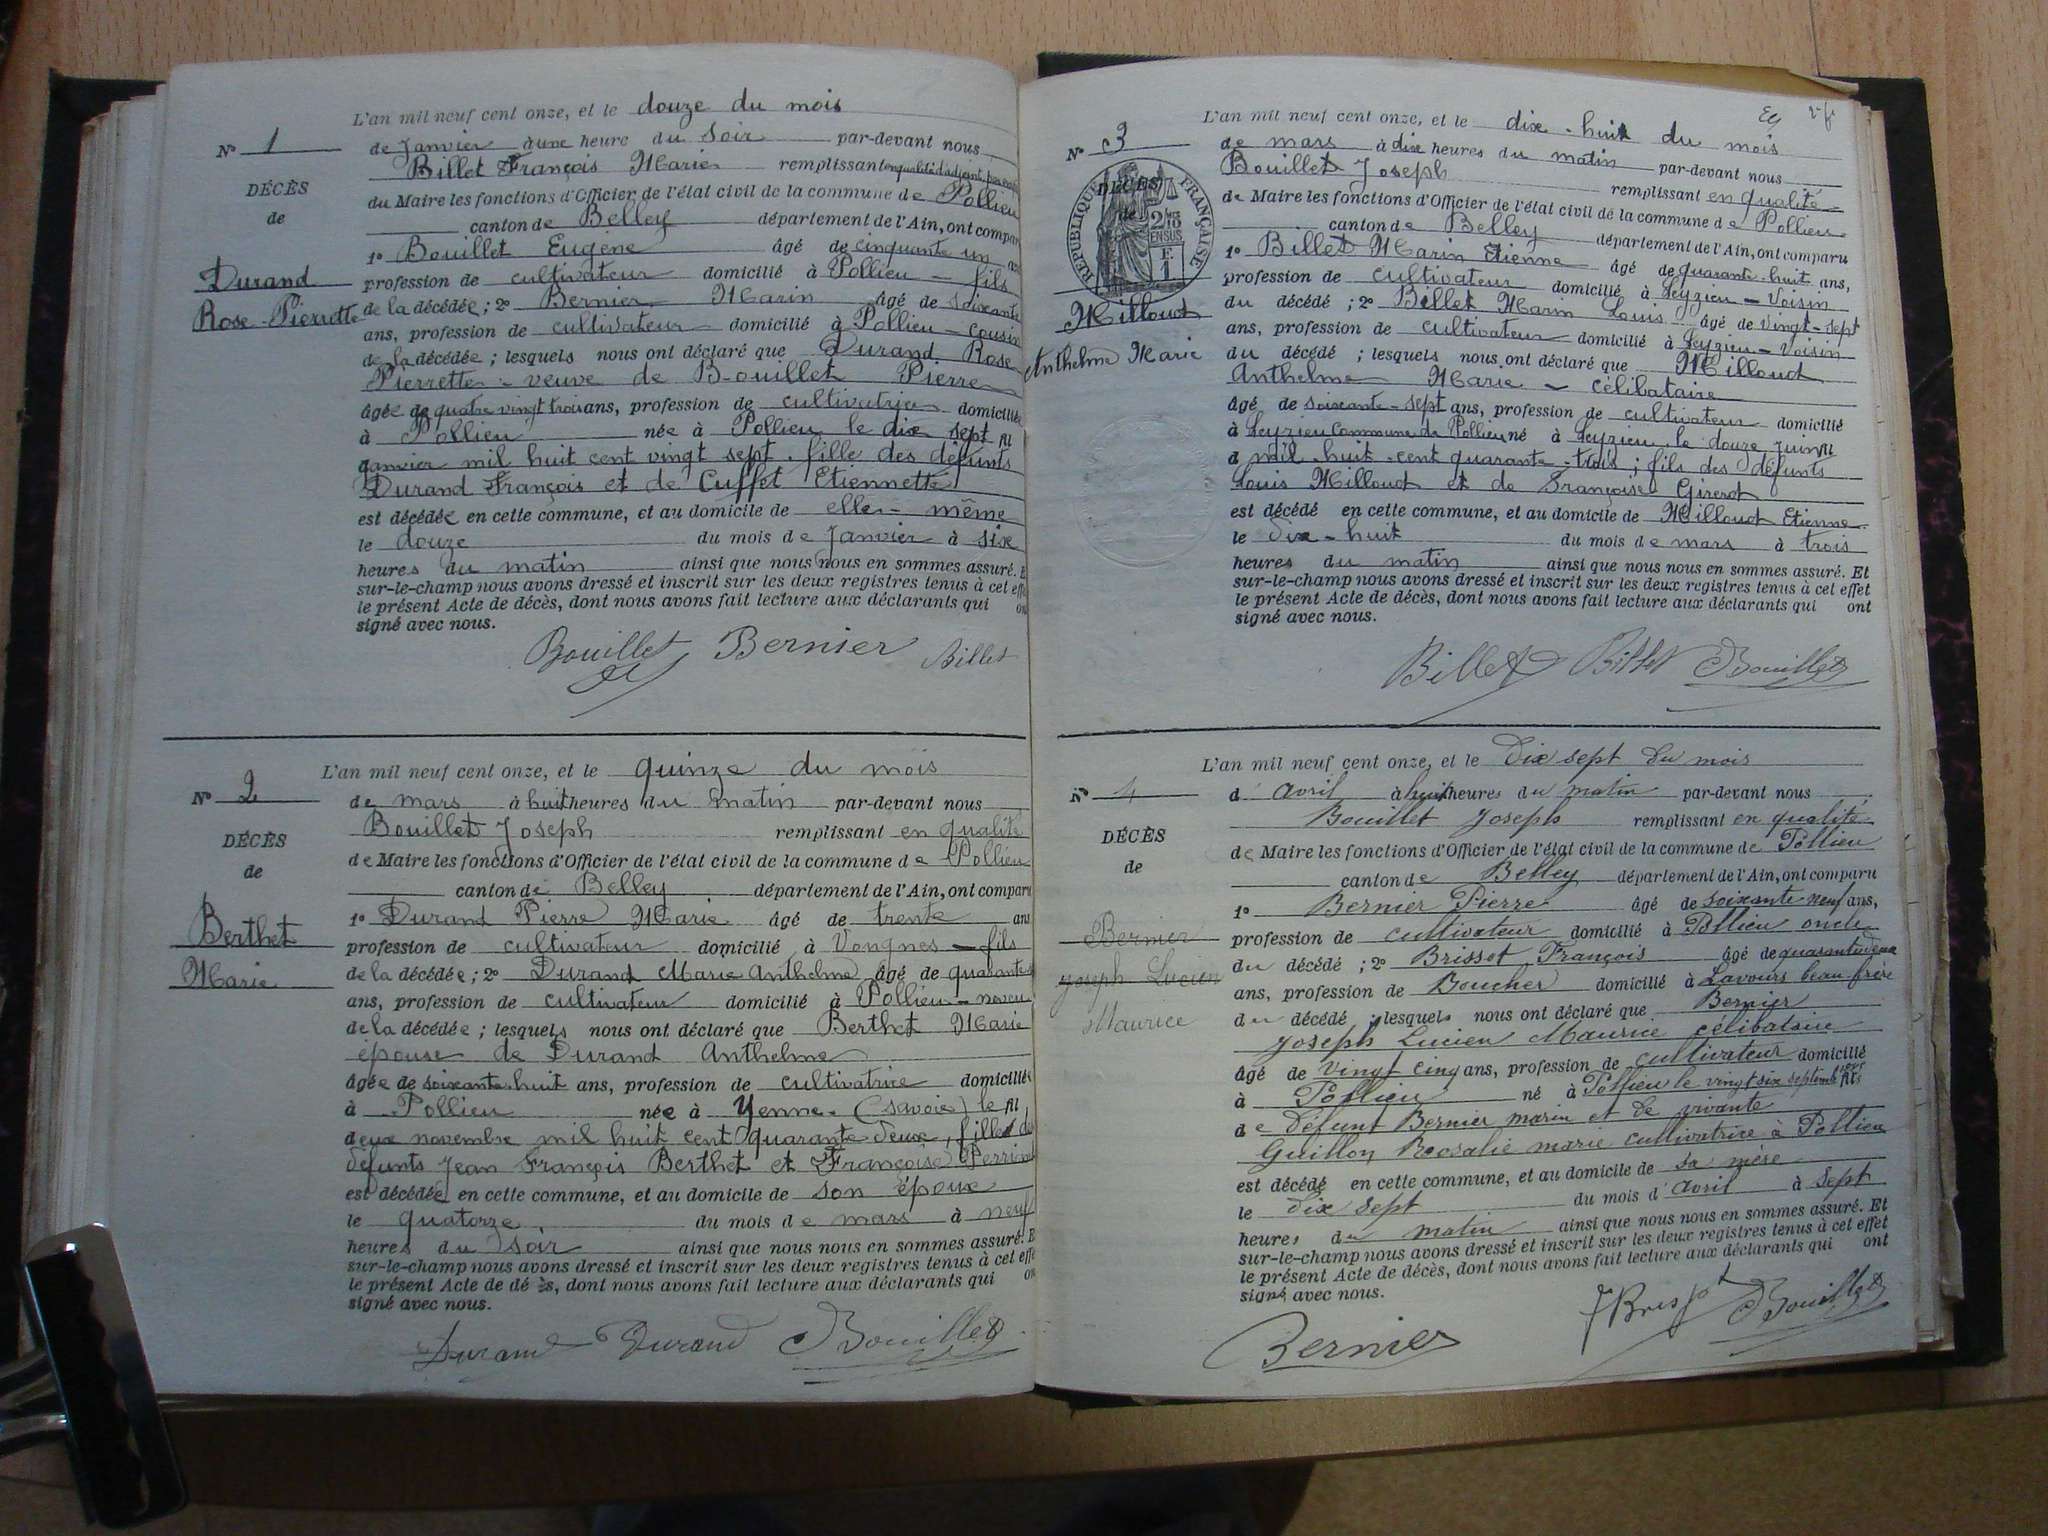 L'an mil neuf cent onze, et le douze du mois
N° 1
de Janvier à une heure du soir par-devant nous
Billet François Marie remplissant en qualité d'adjoint
DÉCÈS
de
du Maire les fonctions d'Officier de l'état civil de la commune de Pollieu
canton de Belley département de l'Ain, ont comparu
1° Bouillet Eugène âgé de cinquante un ans
Durand
Rose Pierrette
profession de cultivateur domicilié à Pollieu - fils
de la décédée ; 2° Bernier Marin âgé de soixante
ans, profession de cultivateur domicilié à Pollieu - cousin
de la décédée ; lesquels nous ont déclaré que Durand Rose
Pierrette - veuve de Bouillet Pierre
âgée de quatre vingt trois ans, profession de cultivatrice domiciliée
à Pollieu née à Pollieu le dix sept fil
janvier mil huit cent vingt sept. fille des défunts
Durand François et de Cuffet Etiennette
est décédée en cette commune, et au domicile de elle - même
le douze du mois de Janvier à six
heures du matin ainsi que nous nous en sommes assuré. E
sur-le-champ nous avons dressé et inscrit sur les deux registres tenus à cet effe
le présent Acte de décès, dont nous avons fait lecture aux déclarants qui on
signé avec nous.
Bouillet Bernier Billet
L'an mil neuf cent onze, et le quinze du mois
N° 2
de mars à huit heures du matin par-devant nous
Bouillet Joseph remplissant en qualité
DÉCÈS
de
de Maire les fonctions d'Officier de l'état civil de la commune de Pollieu
canton de Belley département de l'Ain, ont comparu
1° Durand Pierre Marie âgé de trente ans
Berthet
Marie
profession de cultivateur domicilié à Vongnes - fils
de la décédée ; 2° Durand Marie Anthelme âgé de quarante
ans, profession de cultivateur domicilié à Pollieu - neveu
de la décédée ; lesquels nous ont déclaré que Berthet Marie
épouse de Durand Anthelme
âgée de soixante huit ans, profession de cultivatrice domiciliée
à Pollieu née à Yenne. (Savoie) le fil
deux novembre mil huit cent quarante deux, fille de
défunts Jean François Berthet et Françoise
est décédée en cette commune, et au domicile de son époux
le quatorze. du mois de mars à neuf
heures du soir ainsi que nous nous en sommes assuré. E
sur-le-champ nous avons dressé et inscrit sur les deux registres tenus à cet effe
le présent Acte de décès, dont nous avons fait lecture aux déclarants qui on
signé avec nous.
Durand Durand Bouillet
L'an mil neuf cent onze, et le dix - huit du mois
N° 3
de mars à dix heures du matin par-devant nous
Bouillet Joseph remplissant en qualité
DÉCÈS
de
RÉPUBLIQUE FRANÇAISE
2/10 EN SUS
F.
1
de Maire les fonctions d'Officier de l'état civil de la commune de Pollieu
canton de Belley département de l'Ain, ont comparu
1° Billet Marin Etienne âgé de quarante huit ans,
Milloud
Anthelme Marie
profession de cultivateur domicilié à Leyzieu - Voisin
du décédé ; 2° Billet Marin Louis âgé de vingt-sept
ans, profession de cultivateur domicilié à Leyzieu - Voisin
du décédé ; lesquels nous ont déclaré que Milloud
Anthelme Marie - célibataire
âgé de soixante-sept ans, profession de cultivateur domicilié
à Leyzieu commune de Pollieu né à Leyzieu le douze Juin fil
d mil huit cent quarante-trois ; fils des défunts
Louis Milloud et de Françoise Girerd
est décédé en cette commune, et au domicile de Milloud Etienne
le dix-huit du mois de mars à trois
heures du matin ainsi que nous nous en sommes assuré. Et
sur-le-champ nous avons dressé et inscrit sur les deux registres tenus à cet effet
le présent Acte de décès, dont nous avons fait lecture aux déclarants qui ont
signé avec nous.
Billet Billet Bouillet
L'an mil neuf cent onze, et le dix sept du mois
N° 4
d'avril à huit heures du matin par-devant nous
Bouillet Joseph remplissant en qualité
DÉCÈS
de
de Maire les fonctions d'Officier de l'état civil de la commune de Pollieu
canton de Belley département de l'Ain, ont comparu
1° Bernier Pierre âgé de soixante neuf ans,
Bernier
Joseph Lucien
Maurice
profession de cultivateur domicilié à Pollieu oncle
du décédé ; 2° Brissot François âgé de quarante deux
ans, profession de Boucher domicilié à Lavours beau frère
du décédé ; lesquels nous ont déclaré que Bernier
Joseph Lucien Maurice célibataire
âgé de vingt cinq ans, profession de cultivateur domicilié
à Pollieu né à Pollieu le vingt six septembre fils
de défunt Bernier marin et de vivante
Guillon Rosalie marie cultivatrice à Pollieu
est décédé en cette commune, et au domicile de sa mère
le dix sept du mois d'avril à sept
heures du matin ainsi que nous nous en sommes assuré. Et
sur-le-champ nous avons dressé et inscrit sur les deux registres tenus à cet effet
le présent Acte de décès, dont nous avons fait lecture aux déclarants qui ont
signé avec nous.
Bernier Bouillet